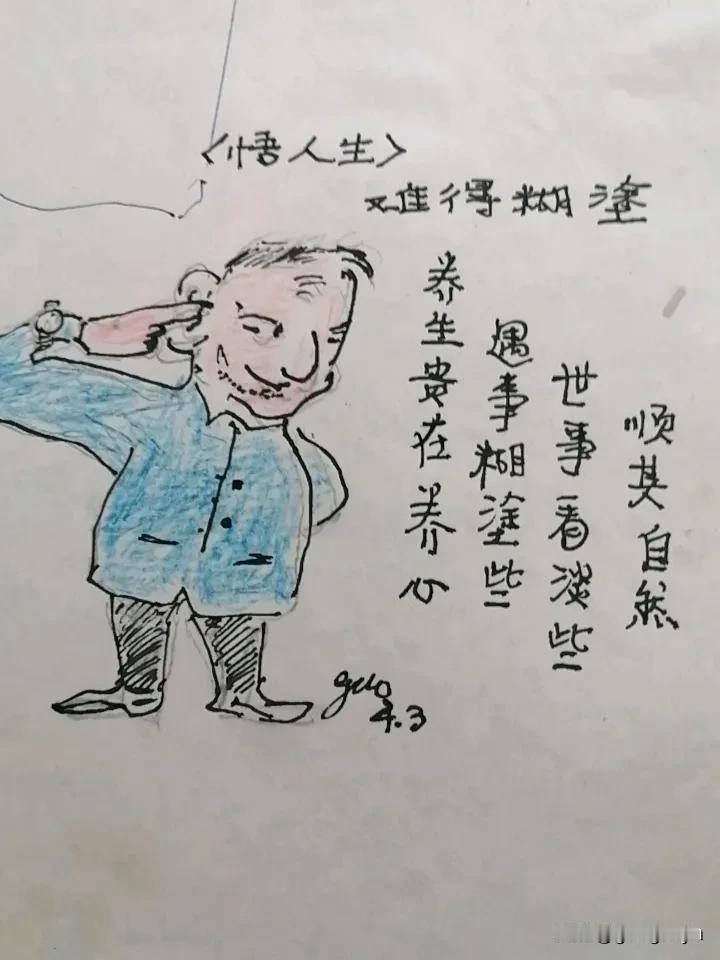 〈悟人生〉
难得糊塗
养生贵在养心
遇事糊塗些
世事看淡些
顺其自然
guo
4.3